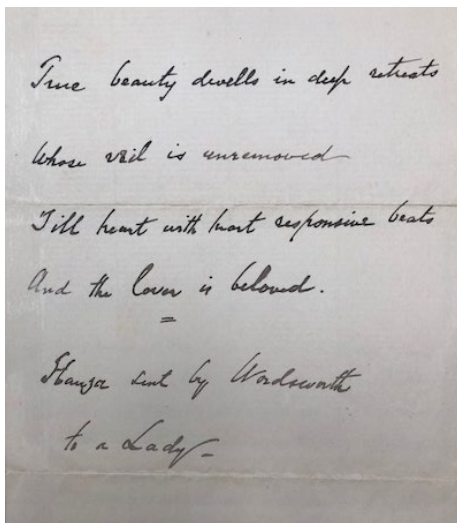 True beauty dwells in deep retreats
Whose veil is unremoved
Till heart with heart responsive beats
And the lover is beloved.
Stanza sent by Wordsworth
to a Lady_